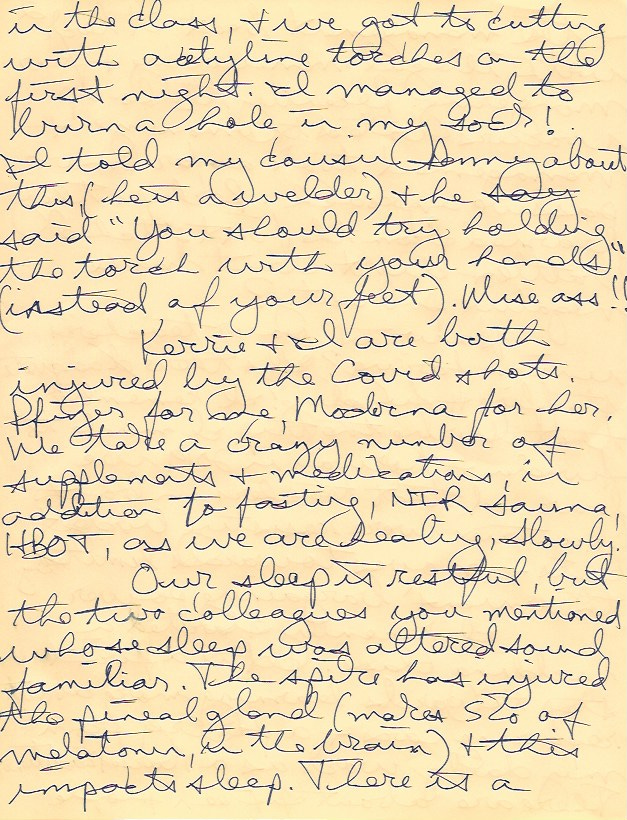 in the class, & we got to cutting
with acetyline torches on the
first night. I managed to
burn a hole in my sock!
I told my cousin about
this, (he's a welder) & he say
said "You should try holding
the torch with your hands"
(instead of your feet). Wise ass!!
Kerrie & I are both
injured by the Covid shots.
Pfizer for me, Moderna for her.
We take a crazy number of
supplements & medications, in
addition to fasting, NIR sauna,
HBOT, as we are healing, slowly.
Our sleep is restful, but
the two colleagues you mentioned
whose sleep was altered sound
familiar. The spike has injured
the pineal gland (makes 5% of
melatonin, in the brain) & this
impacts sleep. There is a